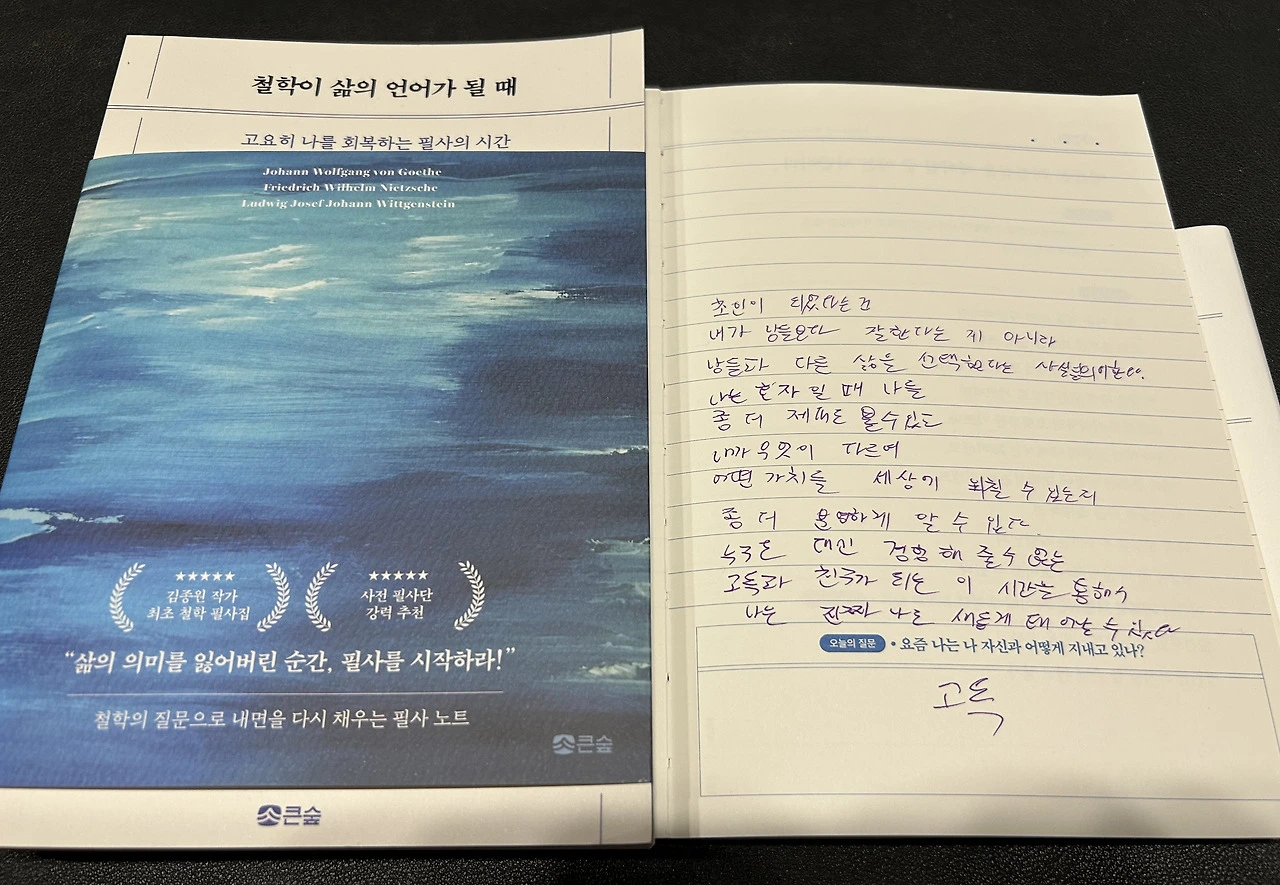 철학이 삶의 언어가 될 때
고요히 나를 회복하는 필사의 시간
Johann Wolfgang von Goethe
Friedrich Wilhelm Nietzsche
Ludwig Josef Johann Wittgenstein
★★★★★
김종원 작가
최초 철학 필사집
★★★★★
사전 필사단
강력 추천
“삶의 의미를 잃어버린 순간, 필사를 시작하라!”
철학의 질문으로 내면을 다시 채우는 필사 노트
큰숲
큰숲
초인이 되었다는 건
내가 남들보다 잘한다는 게 아니라
남들과 다른 삶을 선택한다는
나는 혼자일 때 나를
좀 더 제대로 볼 수 있고
내가 무엇이 다르며
어떤 가치를 세상에 수 있는지
좀 더 알 수 있다.
누구도 대신 경험해 줄 수 없는
고독과 친구가 되는 이 시간을 통해서
나는 진짜 나로 새롭게 태어날 수 있다
오늘의 질문 • 요즘 나는 나 자신과 어떻게 지내고 있나?
고독